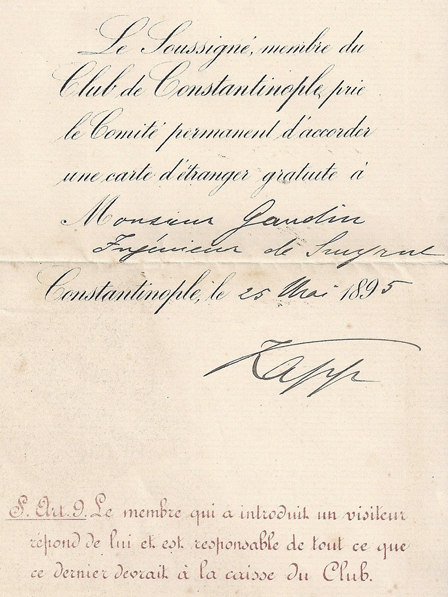 Le Soussigné, membre du
Club de Constantinople, prie
le Comité permanent d'accorder
une carte d'étranger gratuite à
Monsieur Gaudin
Ingénieur de Smyrne
Constantinople, le 25 Mai 1895
Kapp
P. Art. 9. Le membre qui a introduit un visiteur
répond de lui et est responsable de tout ce que
ce dernier devrait à la caisse du Club.